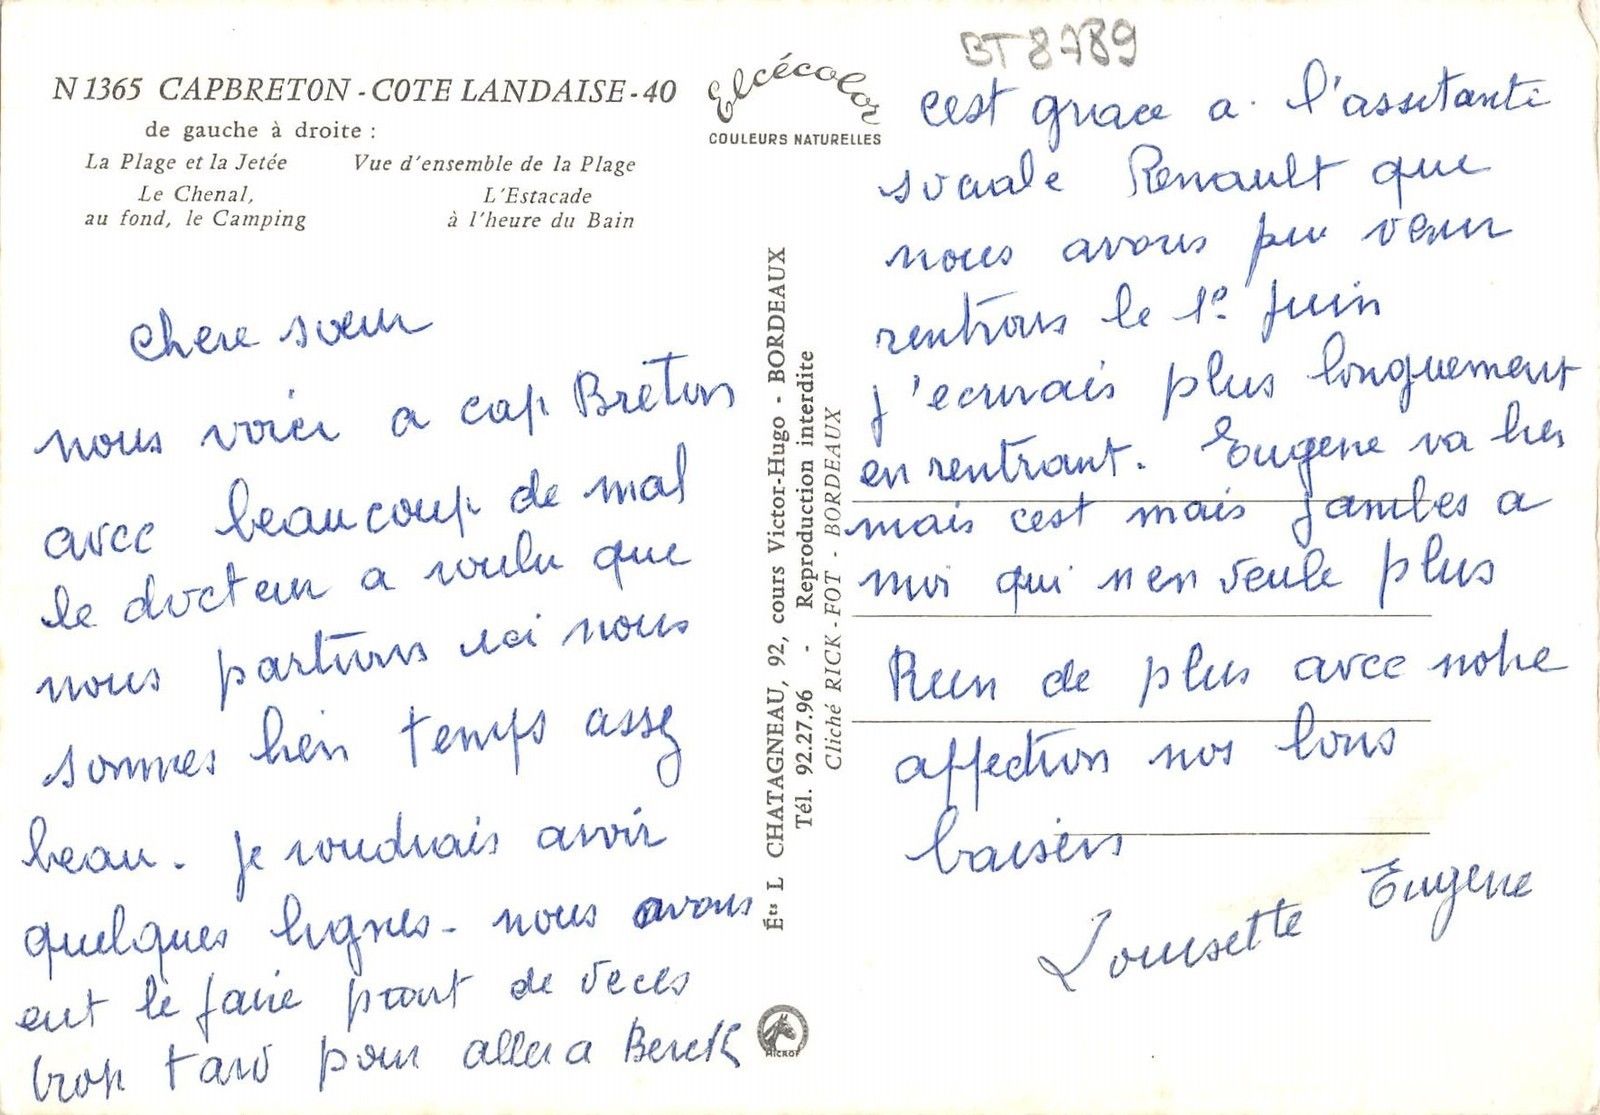 BT 8789
N 1365 CAPBRETON - COTE LANDAISE - 40
de gauche à droite :
La Plage et la Jetée
Vue d'ensemble de la Plage
Le Chenal,
au fond, le Camping
L'Estacade
à l'heure du Bain
Elcécolor
COULEURS NATURELLES
Éts L CHATAGNEAU, 92, cours Victor-Hugo - BORDEAUX
Tél. 92.27.96 - Reproduction interdite
Cliché RICK-FOT - BORDEAUX
MICROF
chere sœur
nous voici a cap Breton
avec beaucoup de mal
le docteur a voulu que
nous partions ici nous
sommes bien temps assez
beau. je voudrais avoir
quelques lignes. nous avons
eut le faire part de deces
trop tard pour aller a Berck
cest grace a l'assitante
sociale Renault que
nous avons pu venir
rentrons le 1e Juin
j'ecrirais plus longuement
en rentrant. Eugene va bien
mais cest mais jambes a
moi qui n en veule plus
Rien de plus avec notre
affection nos bons
baisers
Louisette Eugene